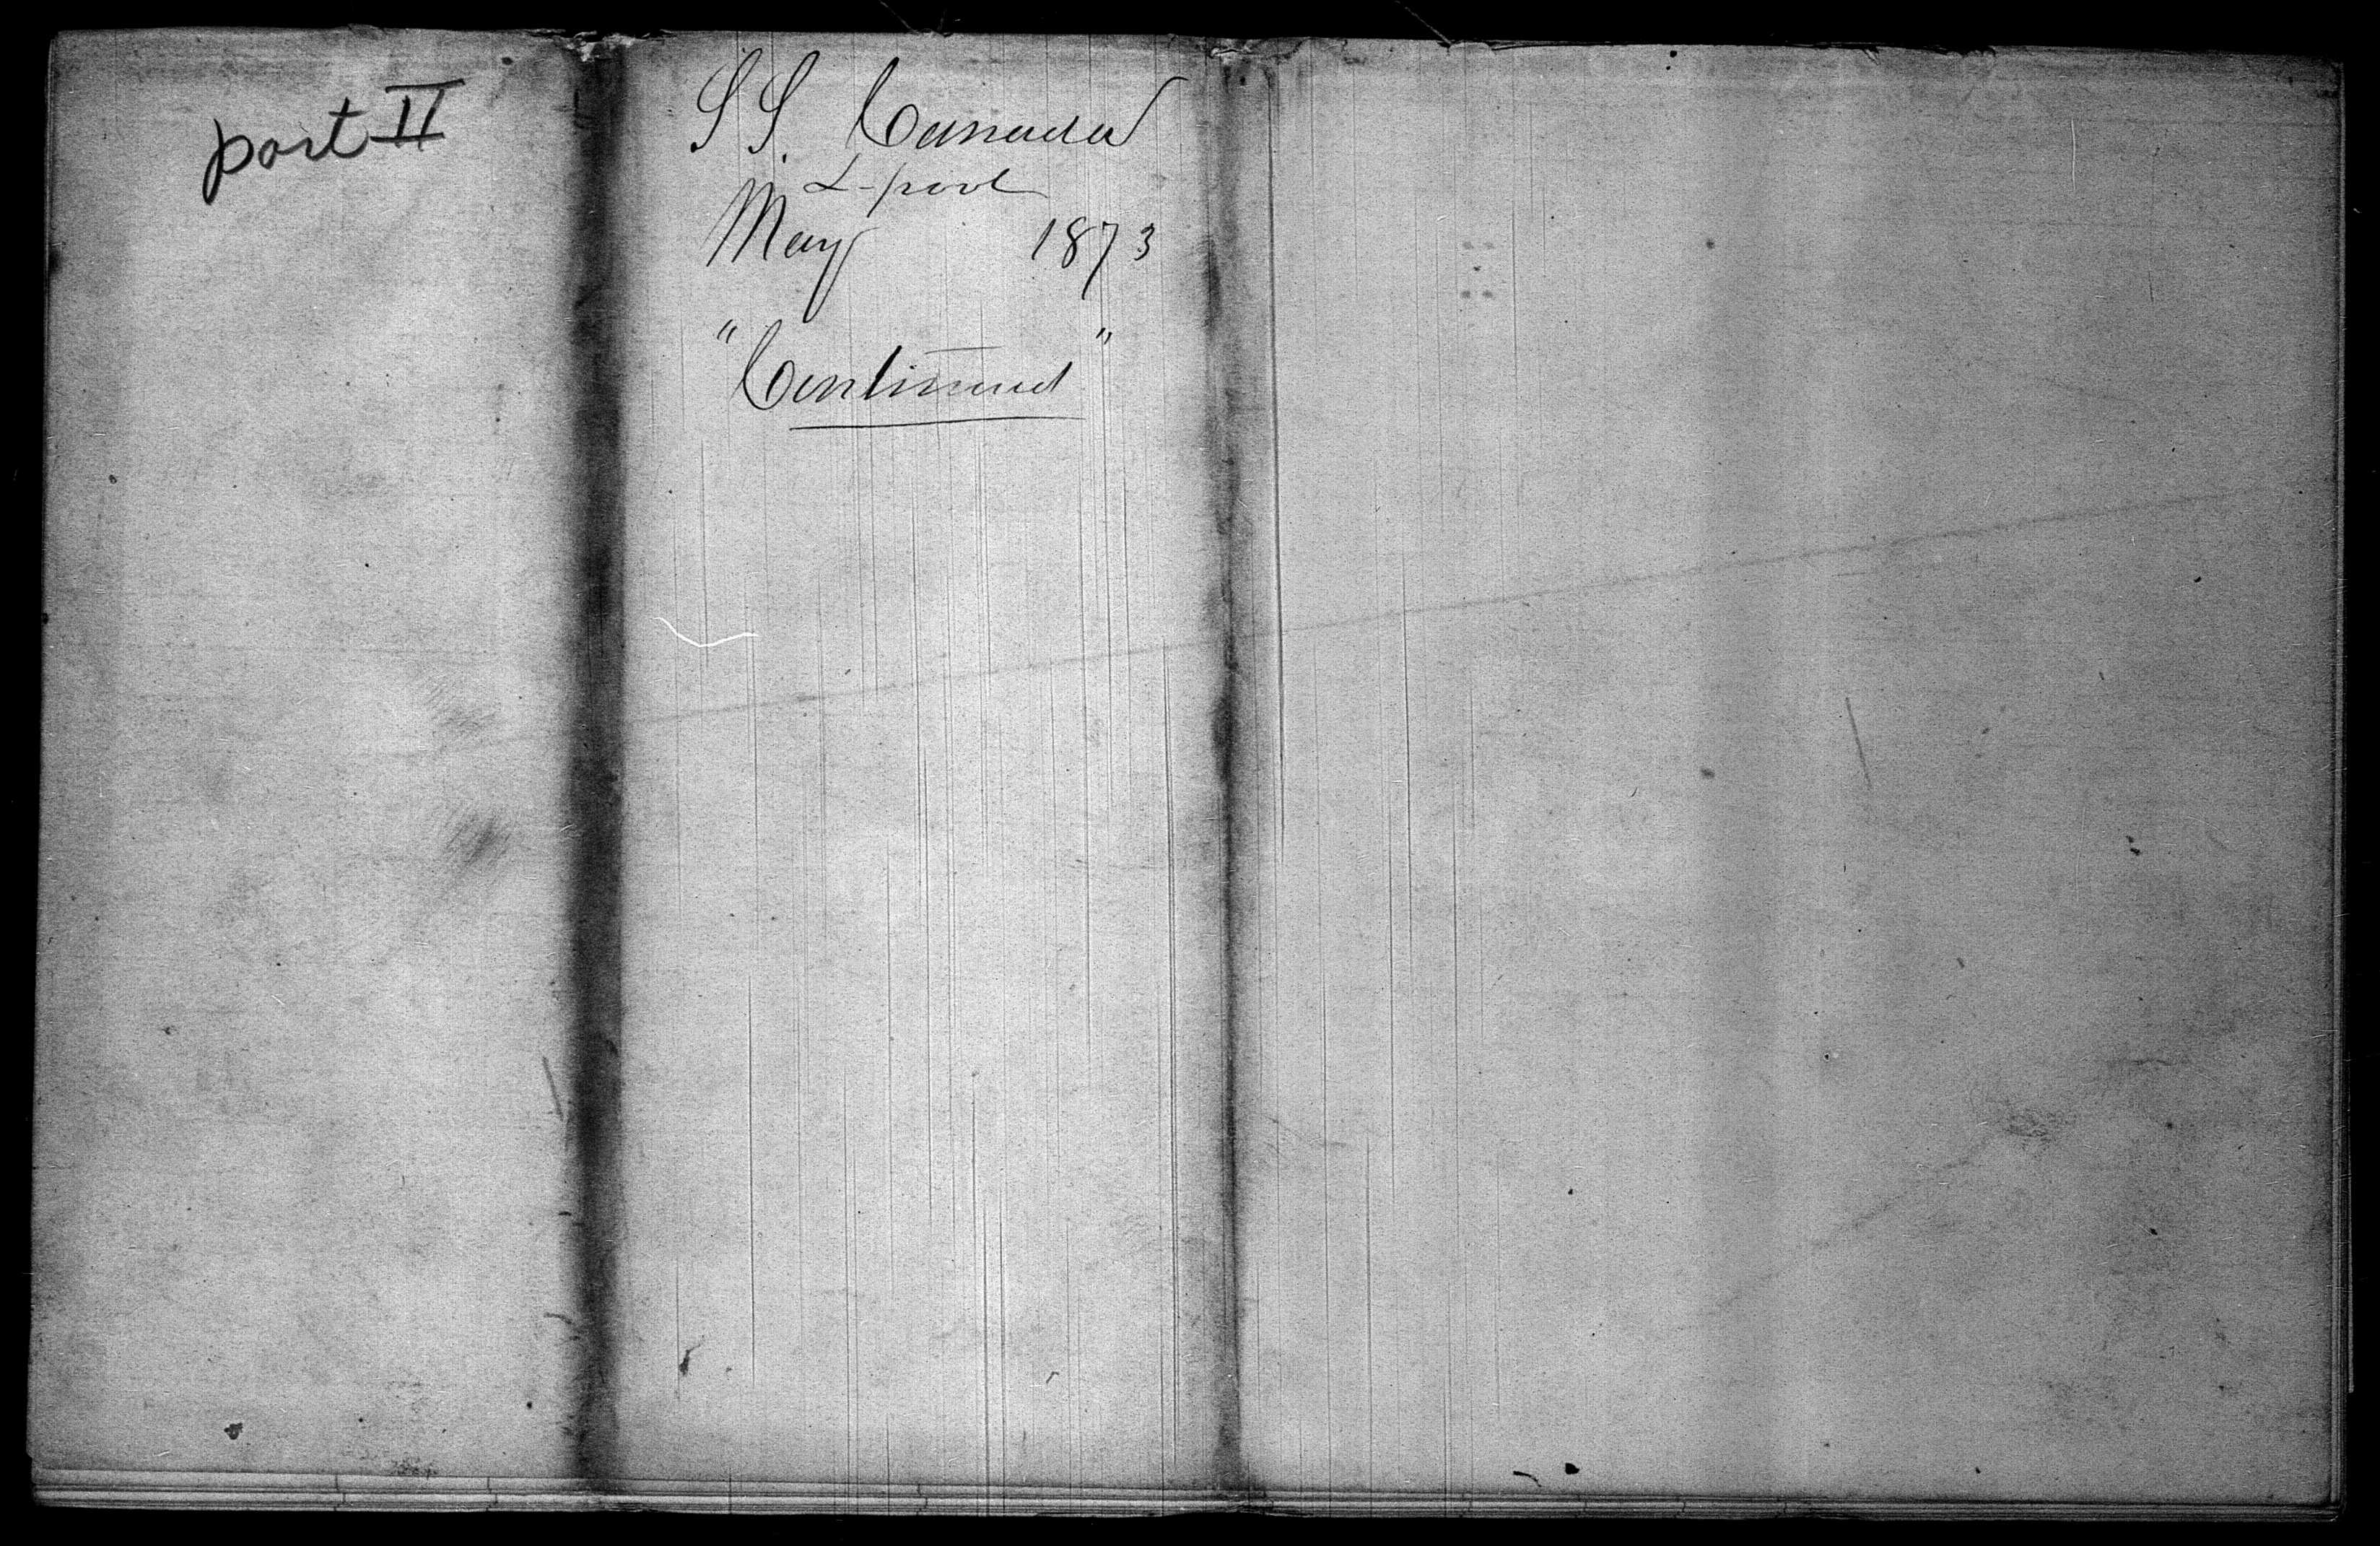 part II
SS. Canada
L-pool
May 1873
"Continued"